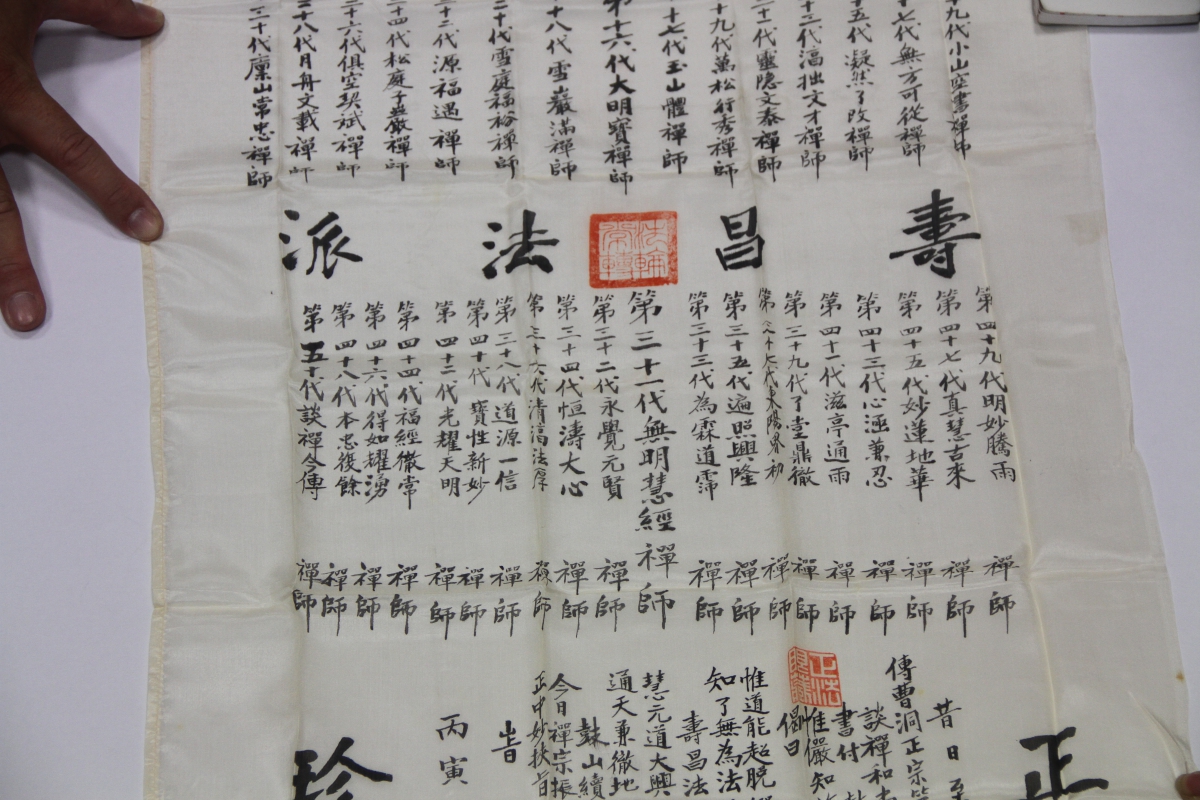 十九代小山
十七代無方可從禪師
十五代凝然了改禪師
十三代淳拙文才禪師
十一代靈隐文泰禪師
十九代萬松行秀禪師
十七代玉山體禪師
第十六代大明寶禪師
十八代雪巖滿禪師
二十代雪庭福裕禪師
二十二代源福遇禪師
二十四代松庭子嚴禪師
二十六代俱空契斌禪師
二十八代月舟文載禪師
三十代廩山常忠禪師
壽昌法派
第四十九代明妙騰雨禪師
第四十七代真慧古來禪師
第四十五代妙蓮地華禪師
第四十三代心涵兼忍禪師
第四十一代滋亭通雨禪師
第三十九代了堂鼎徹禪師
第三十七代東陽界初禪師
第三十五代遍照興隆禪師
第三十三代為霖道霈禪師
第三十一代無明慧經禪師
第三十二代永覺元賢禪師
第三十四代恒濤大心禪師
第三十六代清淳法厚禪師
第三十八代道源一信禪師
第四十代寶性新妙禪師
第四十二代光耀天明禪師
第四十四代福經徹常禪師
第四十六代得如耀湧禪師
第四十八代本忠復餘禪師
第五十代談禪今傳禪師
正
昔日至
傳曹洞正宗
談禪和
書付
惟儼知
偈曰
惟道能超脫
知了無為法
壽昌法
慧元道大興
通天兼徹地
鼓山續
今日禪宗振
正中妙扶
旹
丙寅
珍